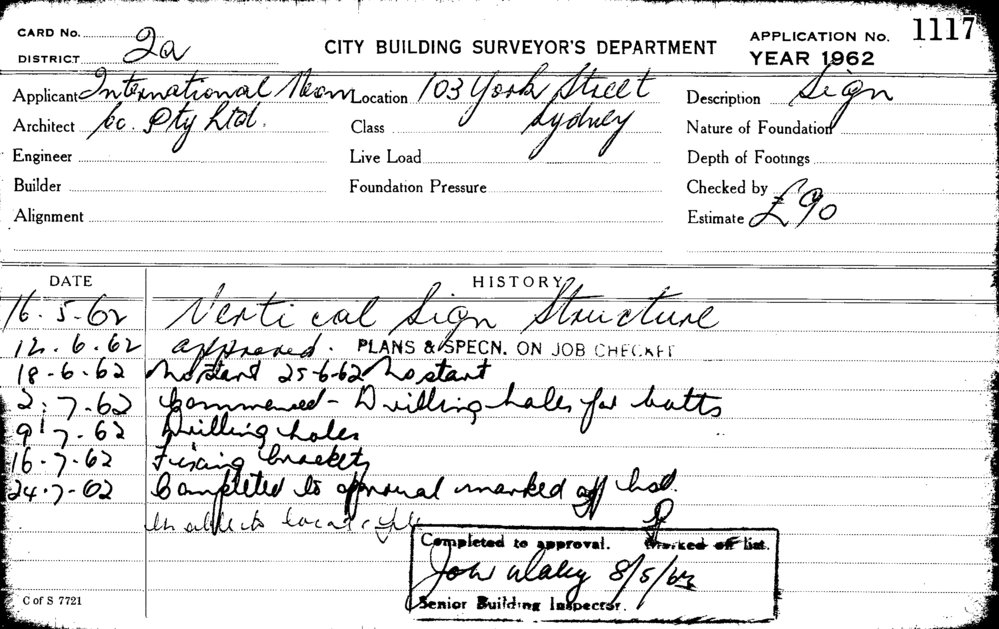 CARD No. 
DISTRICT 2a
CITY BUILDING SURVEYOR'S DEPARTMENT
APPLICATION No. 1117
YEAR 1962
Applicant International Neon
Location 103 York Street
Description Sign
Architect Co. Pty Ltd.
Class Sydney
Nature of Foundation
Engineer
Live Load
Depth of Footings
Builder
Foundation Pressure
Checked by
Alignment
Estimate £90
DATE HISTORY
16.5.62 Vertical Sign Structure
12.6.62 approved. PLANS & SPECN. ON JOB CHECKED
18-6-62 No start 25-6-62 No start
2.7.62 Commenced - Drilling holes for bolts
9.7.62 Drilling holes
16.7.62 Fixing brackets
24.7.62 Completed to approval marked off list.
Completed to approval. Marked off list.
8/5/63
Senior Building Inspector.
C of S 7721